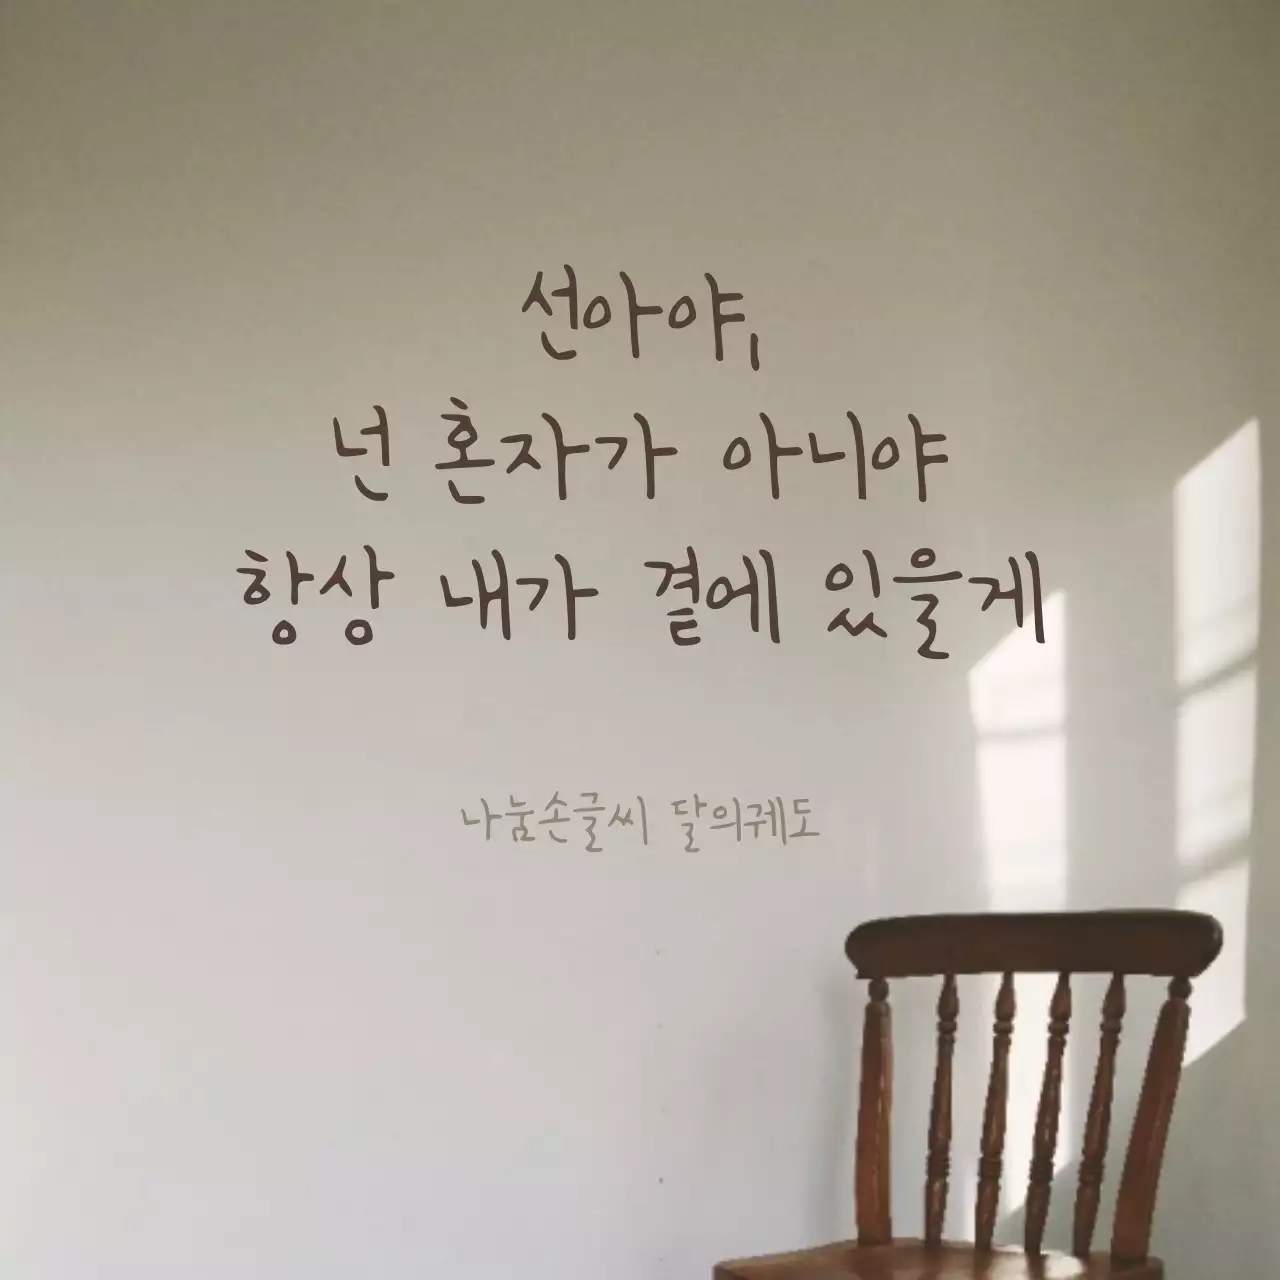 선아야,
넌 혼자가 아니야
항상 내가 곁에 있을게
나눔손글씨 달의궤도